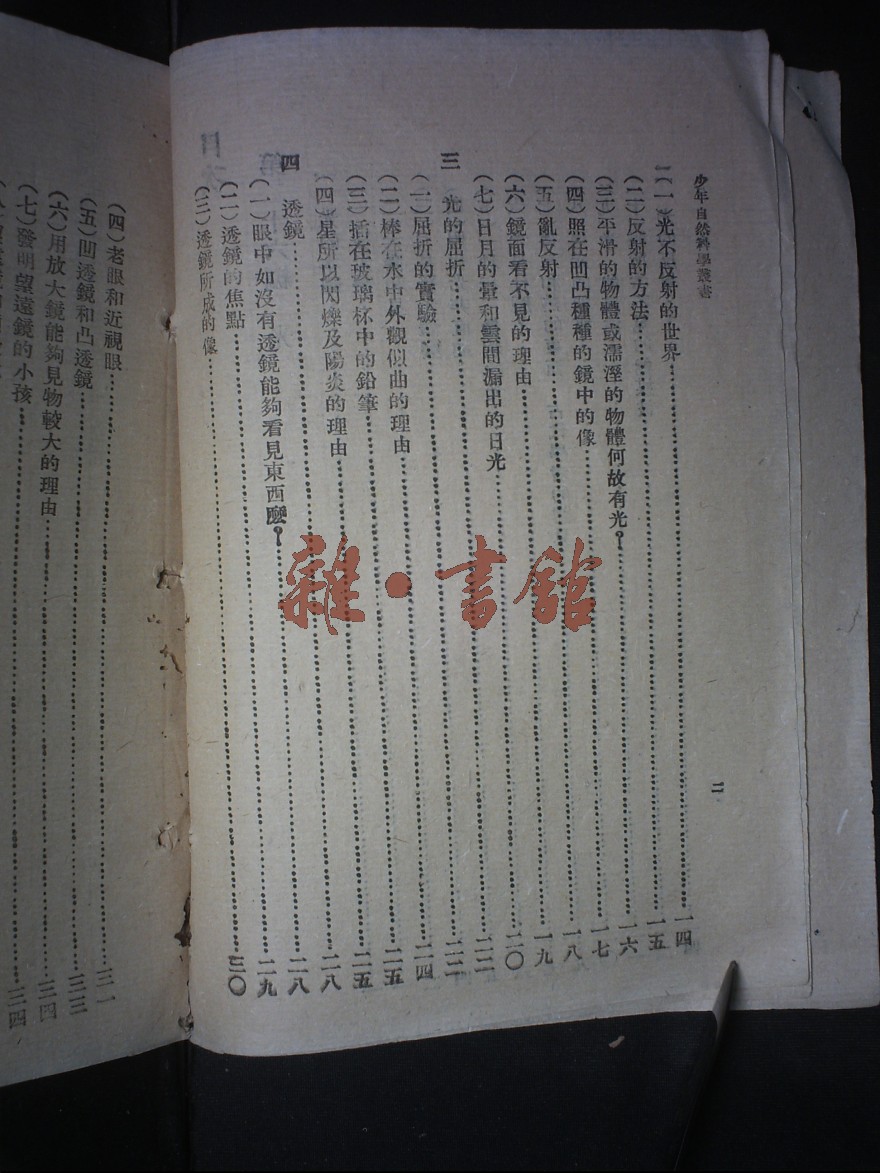 少年自然科學叢書
(一)光不反射的世界……一四
(二)反射的方法……一五
(三)平滑的物體或濡溼的物體何故有光?……一六
(四)照在凹凸種種的鏡中的像……一七
(五)亂反射……一八
(六)鏡面看不見的理由……一九
(七)日月的暈和雲間漏出的日光……二〇
三 光的屈折……二二
(一)屈折的實驗……二二
(二)棒在水中外觀似曲的理由……二四
(三)插在玻璃杯中的鉛筆……二五
(四)星所以閃爍及陽炎的理由……二五
四 透鏡……二八
(一)眼中如沒有透鏡能夠看見東西麼?……二八
(二)透鏡的焦點……二九
(三)透鏡所成的像……三〇
二
(四)老眼和近視眼……三一
(五)凹透鏡和凸透鏡……三三
(六)用放大鏡能夠見物較大的理由……三四
(七)發明望遠鏡的小孩……三四
雜·書館